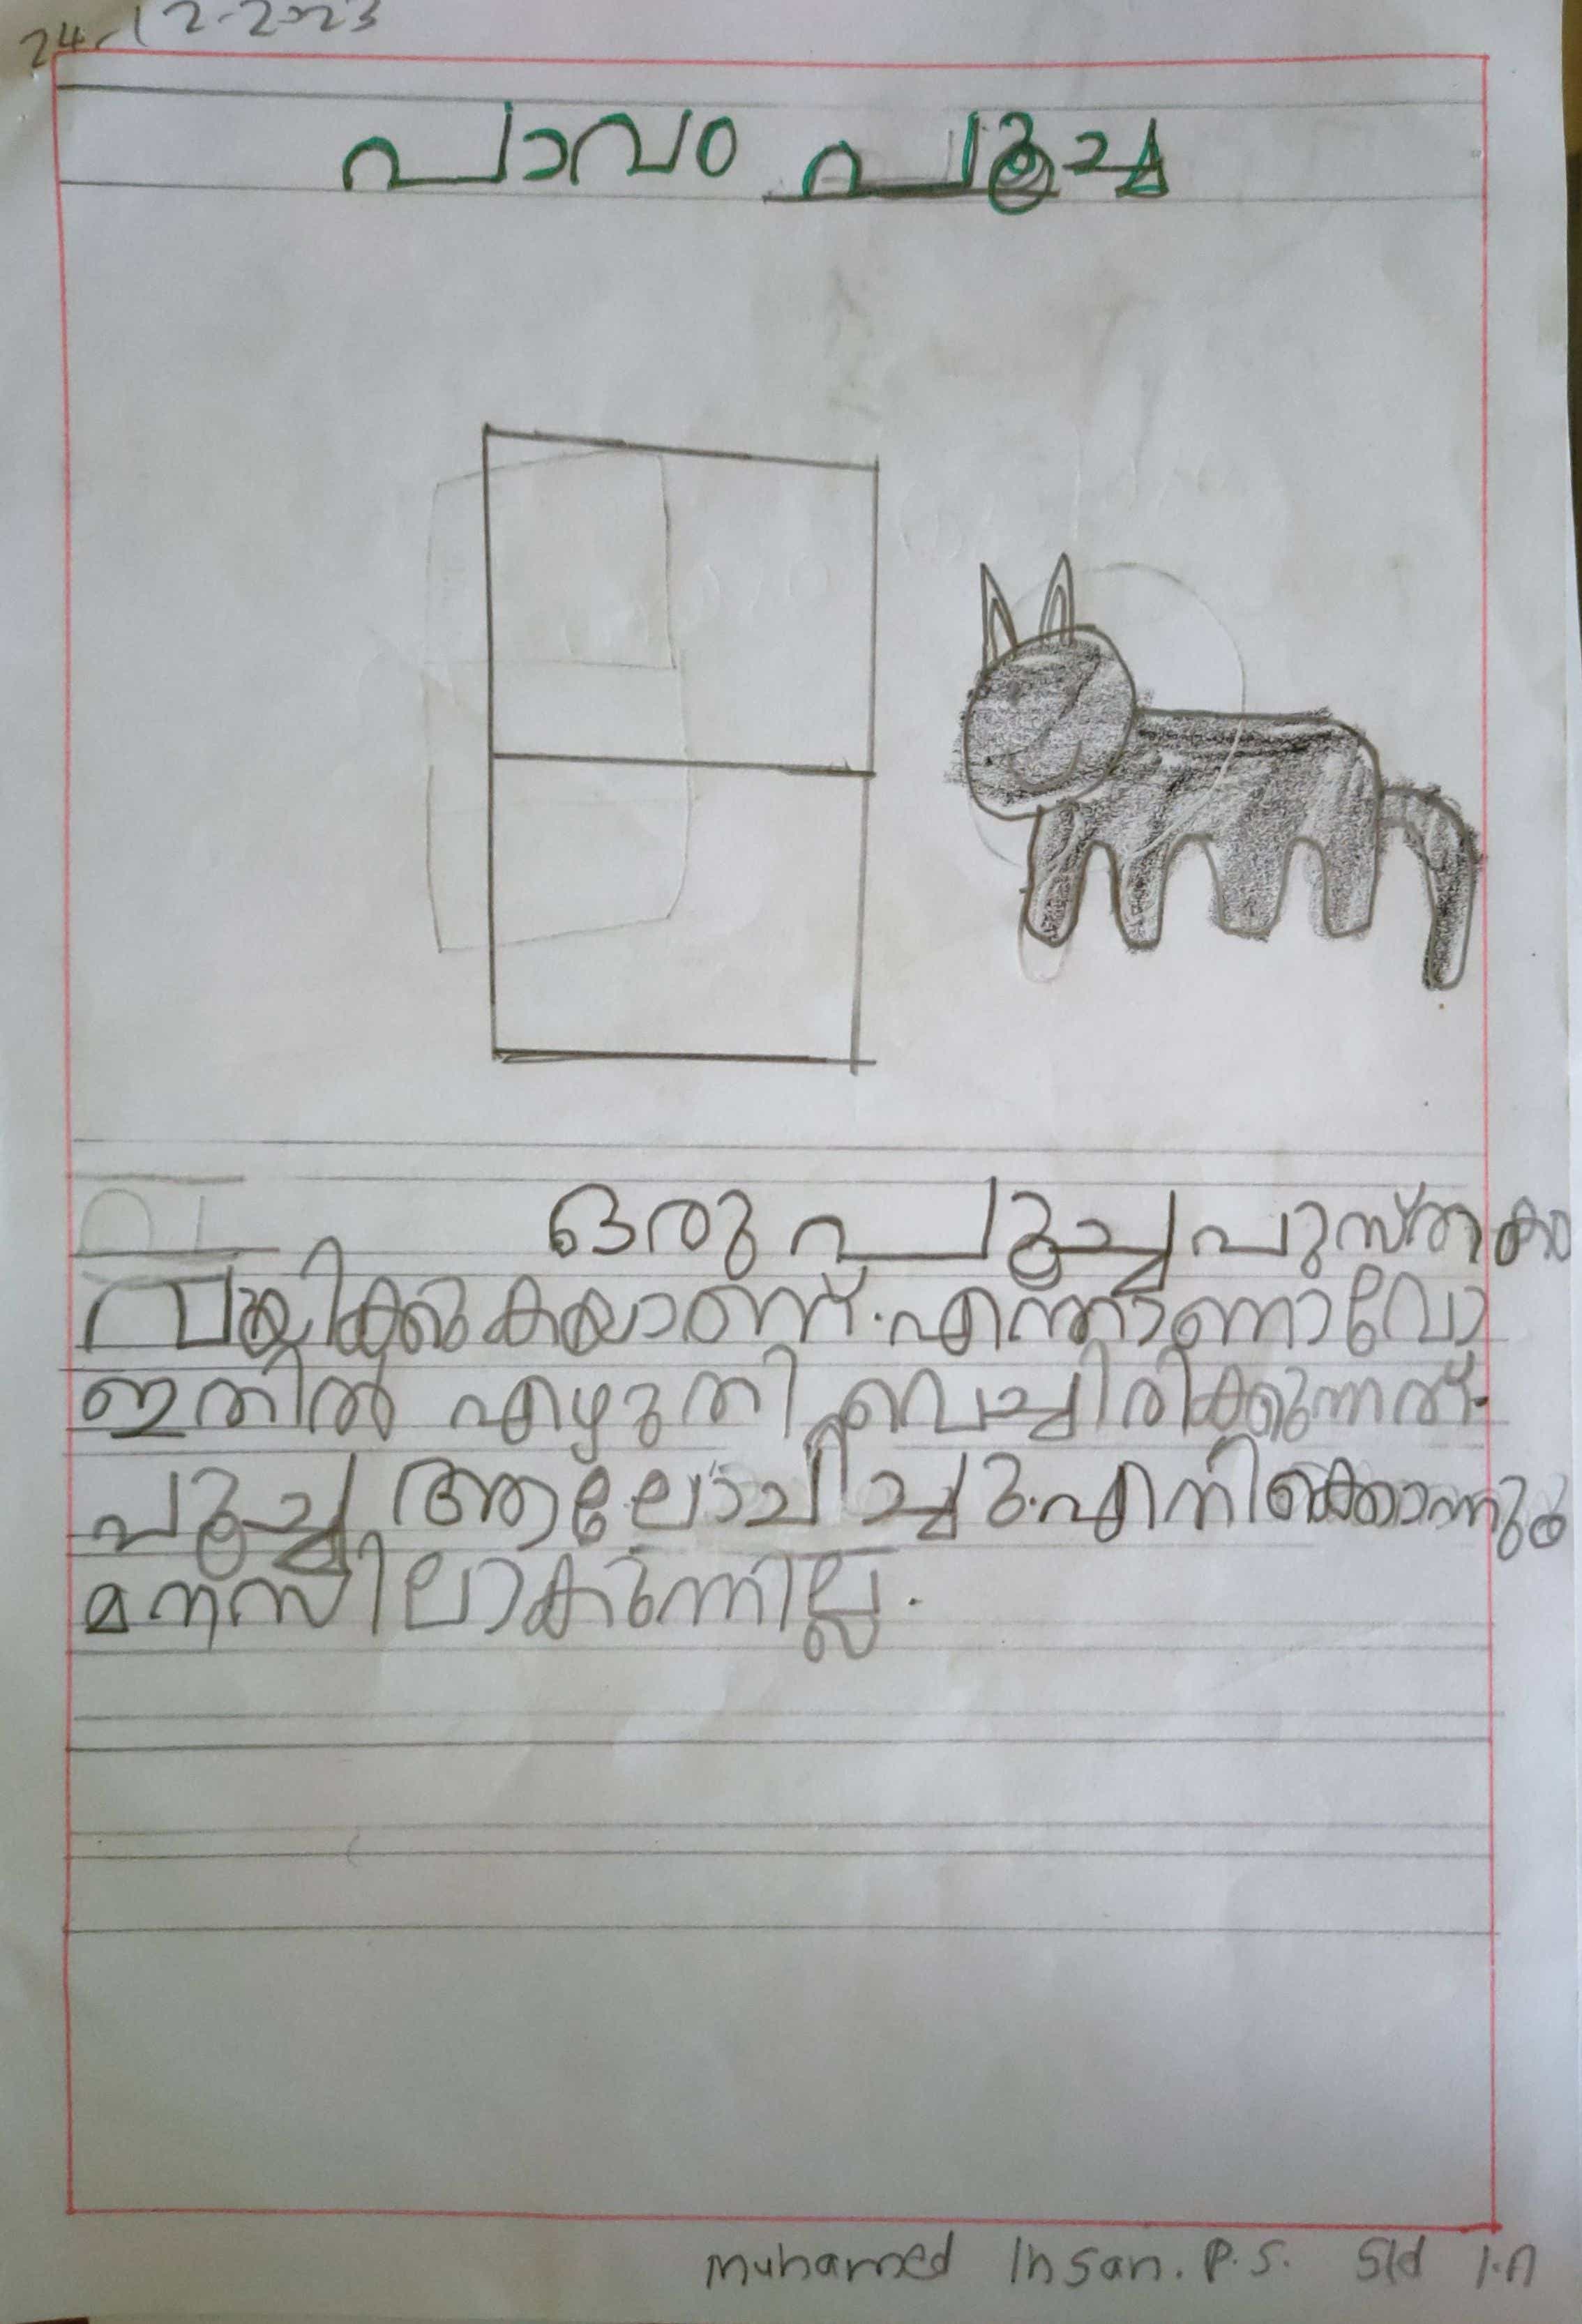 24-12-2023
പാവം പൂച്ച
ഒരു പൂച്ച പുസ്തകം
വായിക്കുകയാണ്. എന്താണാവോ
ഇതിൽ എഴുതി വെച്ചിരിക്കുന്നത്.
പൂച്ച ആലോചിച്ചു. എനിക്കൊന്നും
മനസിലാകുന്നില്ല.
Muhamed Ihsan. P.S. Std 1.A